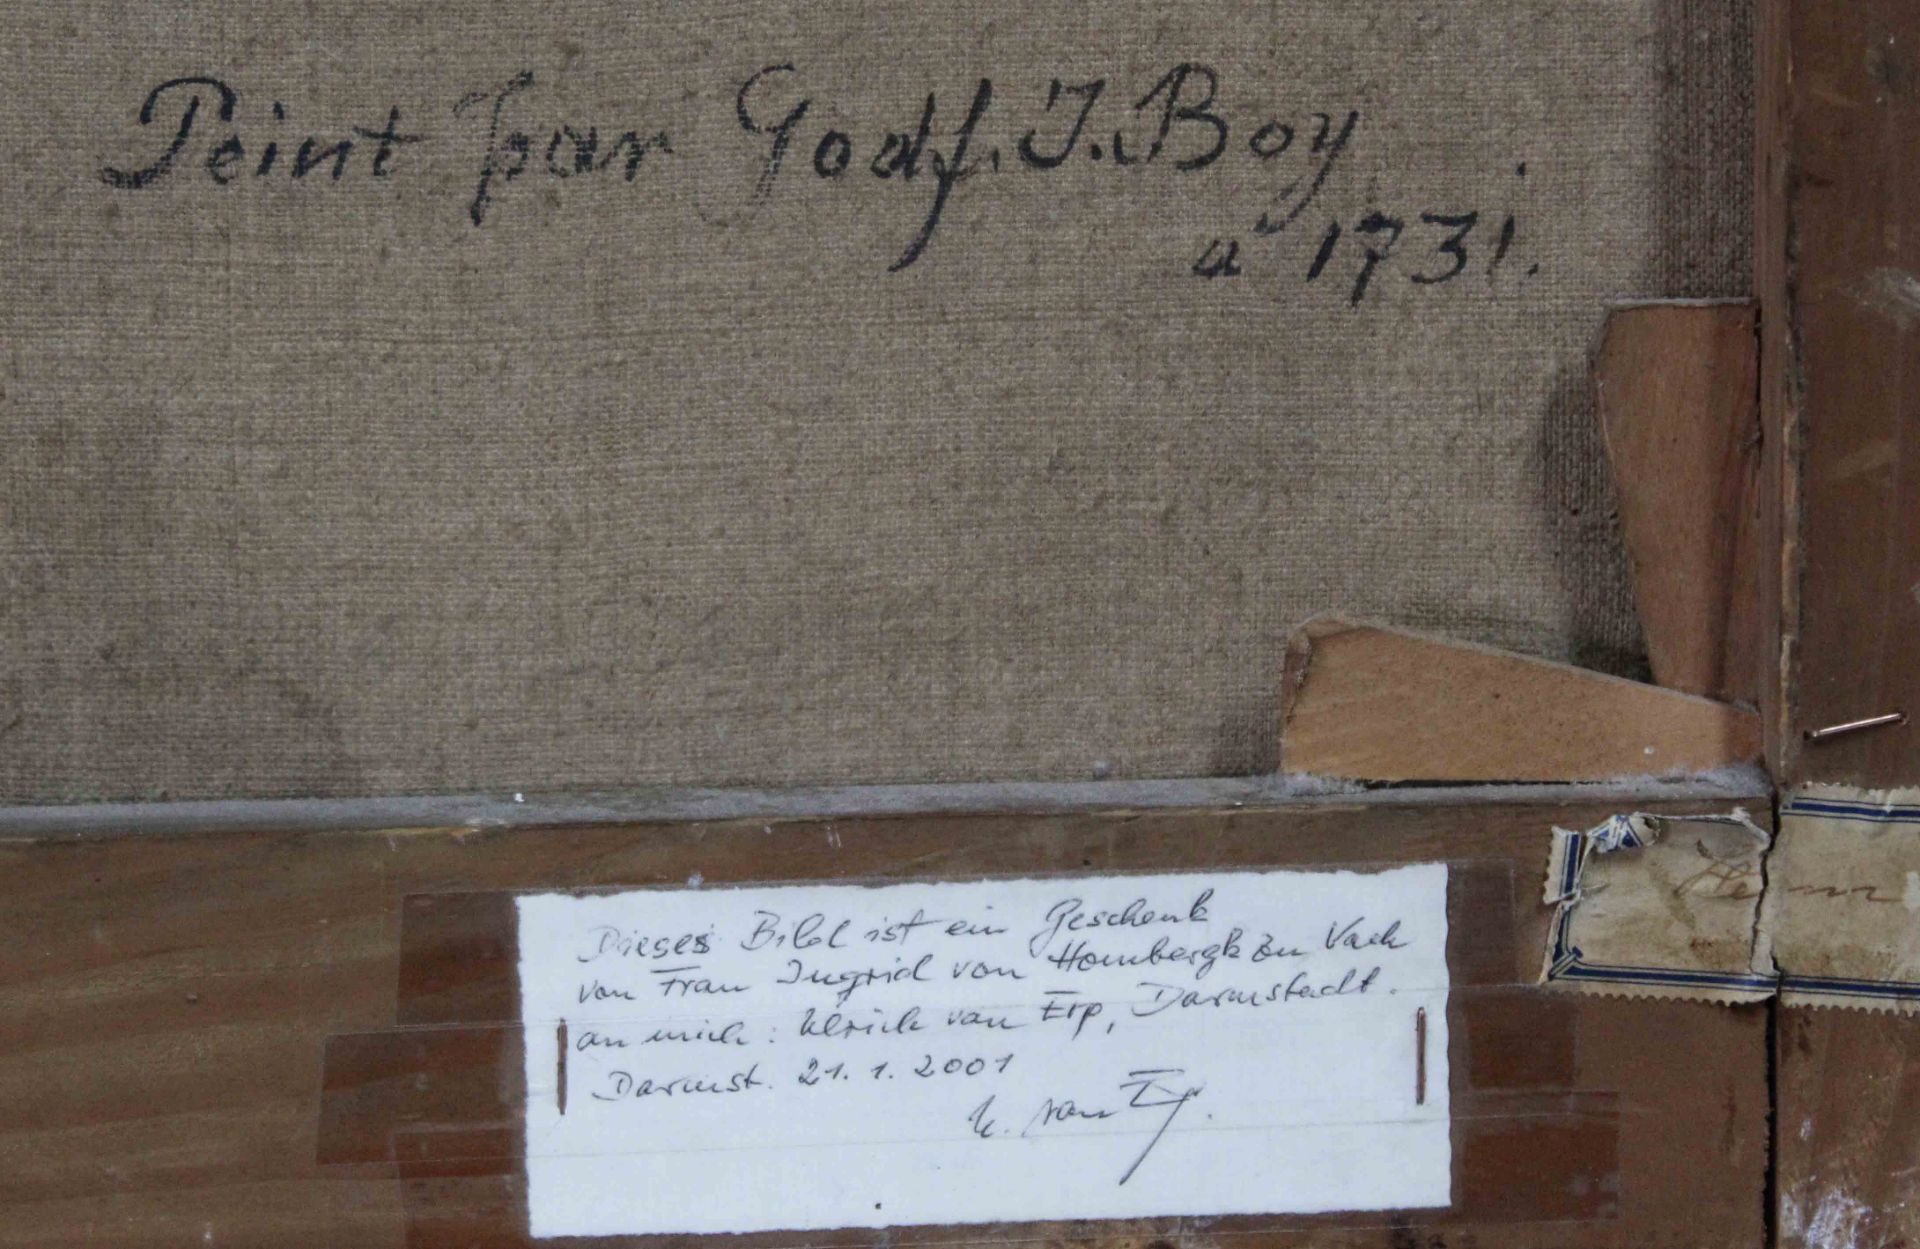 Peint par Godf. J. Boy
a° 1731.
Dieses Bild ist ein Geschenk
von Frau Ingrid von Hombergk zu Vach
an mich: Ulrich van Erp, Darmstadt.
Darmst. 21. 1. 2001
U. van Erp.